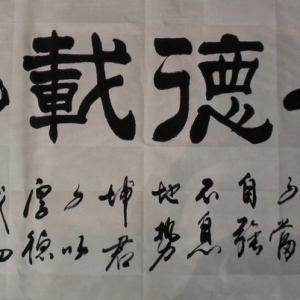 德載
子當
自強
不息
地勢
坤君
子以
厚德